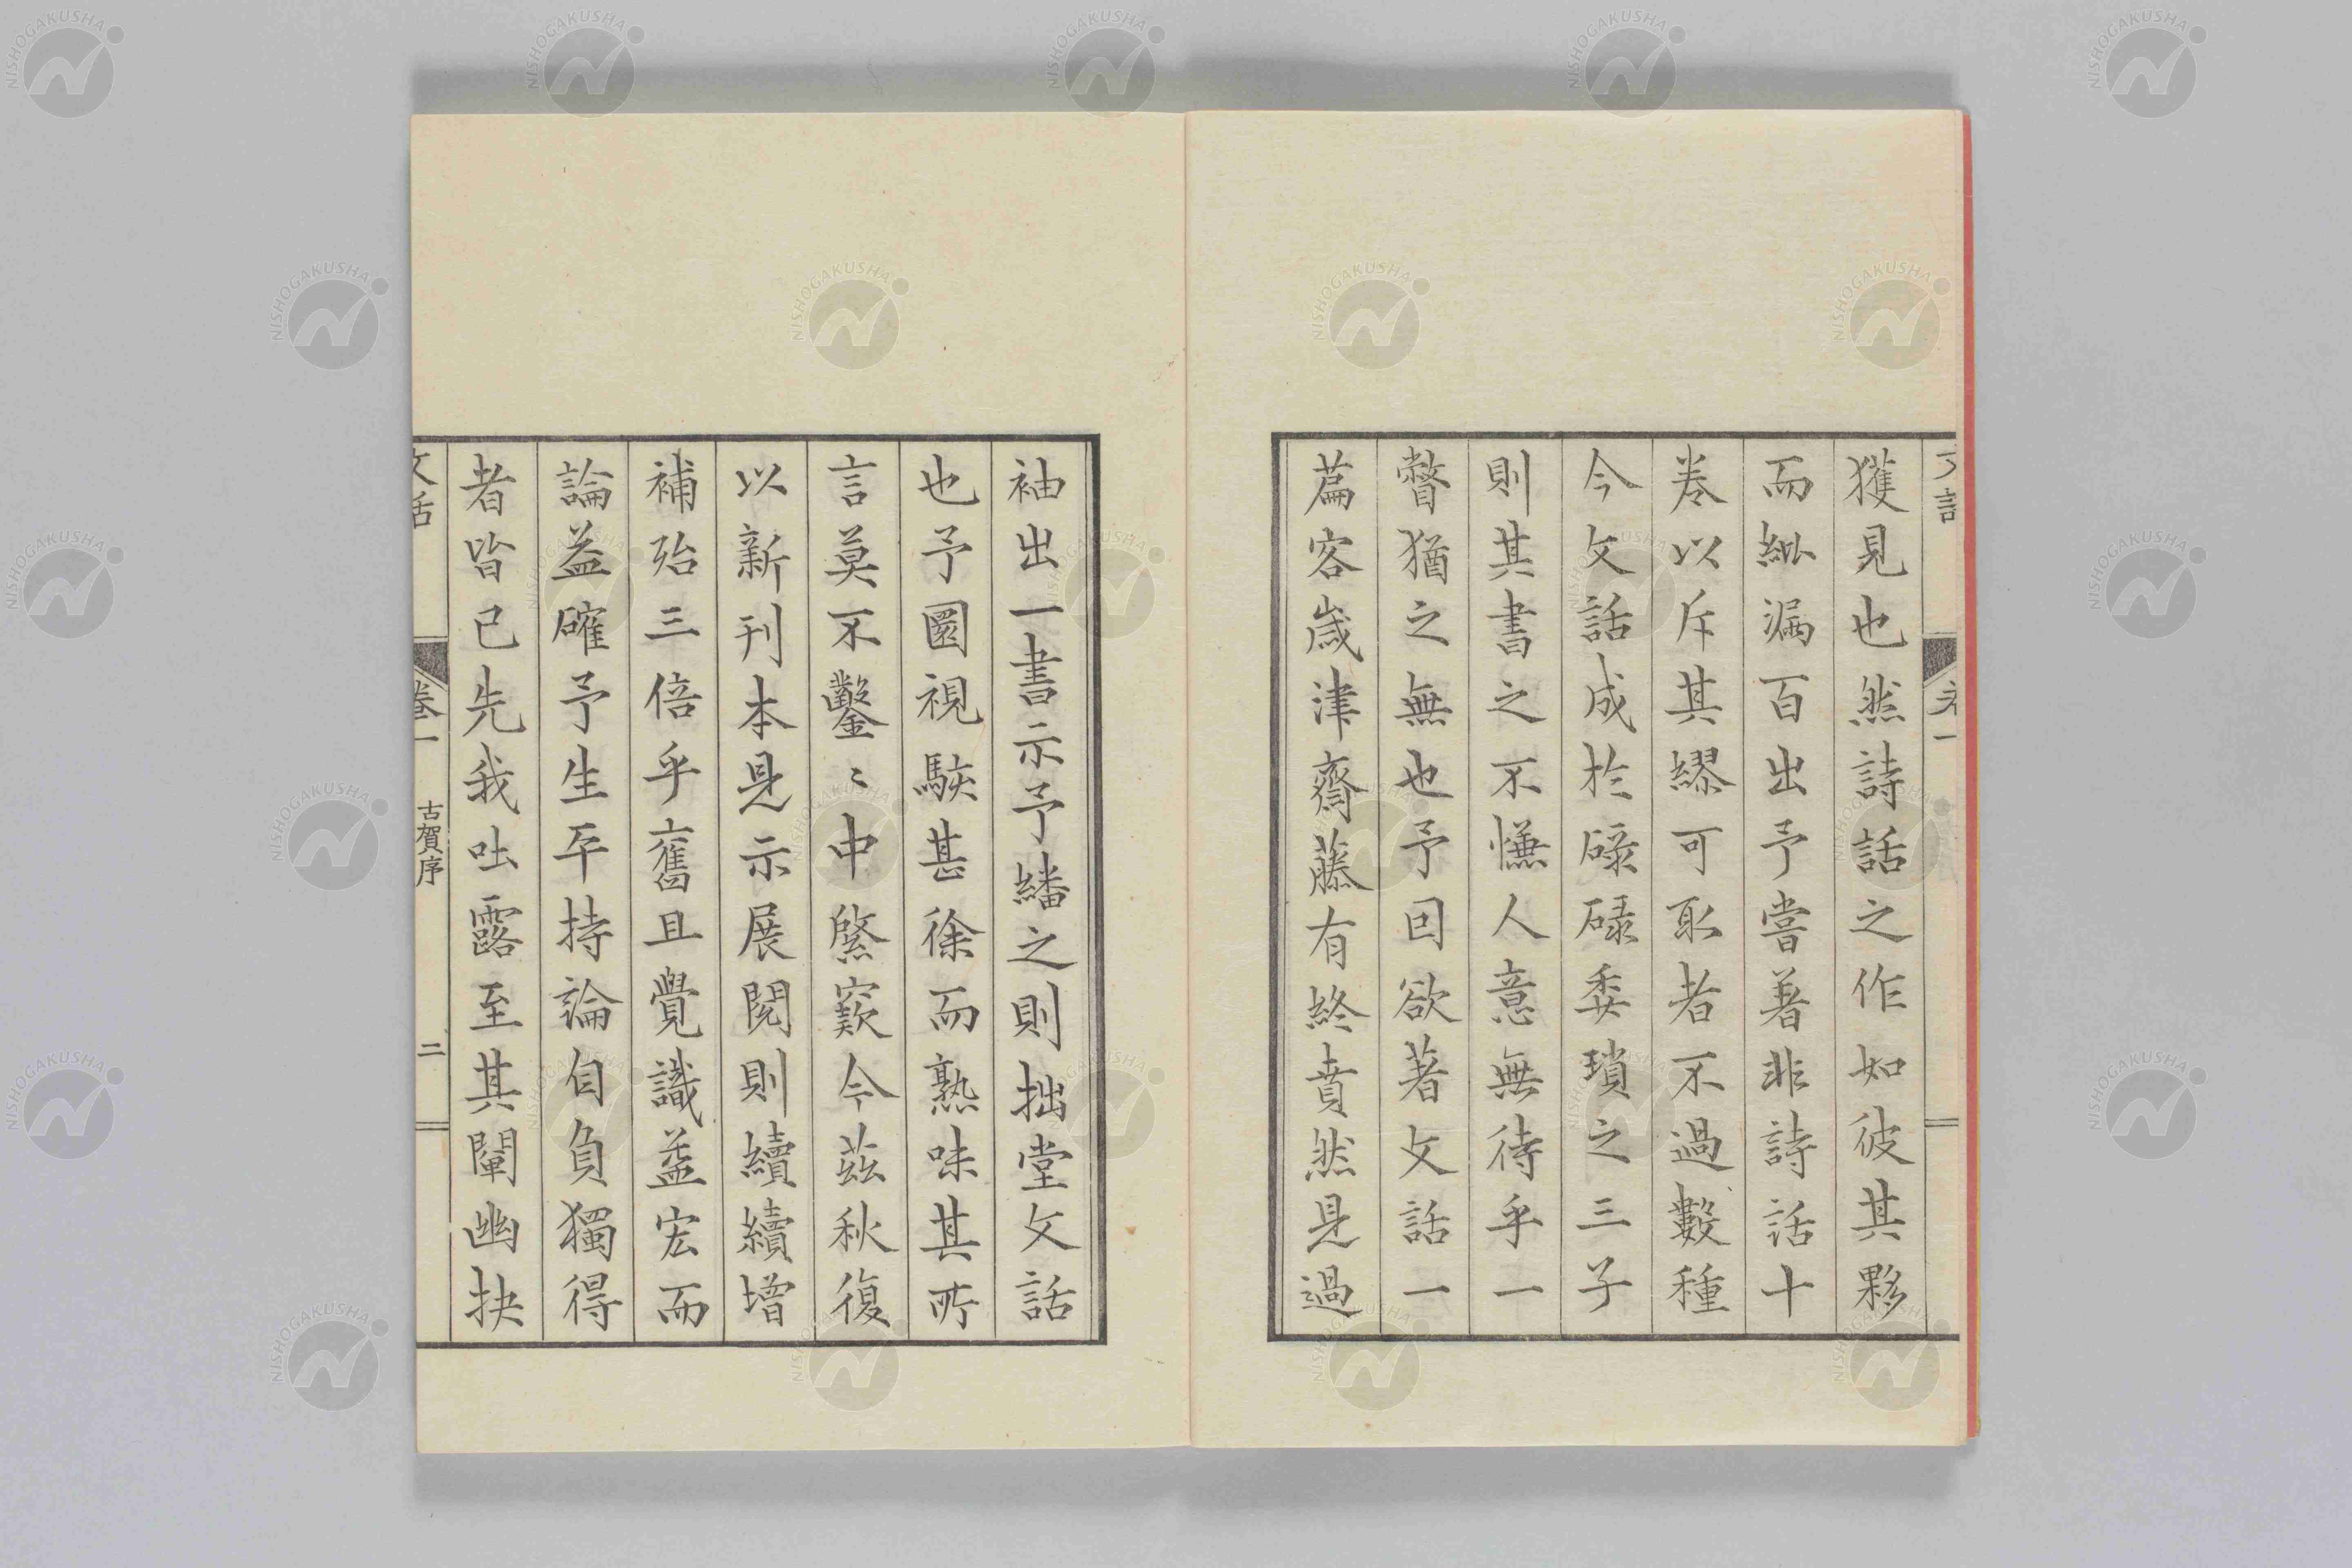 獲見也然詩話之作如彼其夥
而紕漏百出予嘗著非詩話十
卷以斥其繆可取者不過數種
今文話成於碌碌委瑣之三子
則其書之不慊人意無待乎一
瞥猶之無也予回欲著文話一
篇客歳津齋藤有終賁然見過
袖出一書示予繙之則拙堂文話
也予圜視駭甚徐而熟味其所
言莫不鑿〻中綮窾今茲秋復
以新刊本見示展閱則續續增
補殆三倍乎舊且覺識益宏而
論益確予生平持論自負獨得
者皆已先我吐露至其闡幽抉
文話
卷一
古賀序
二
NISHOGAKUSHA